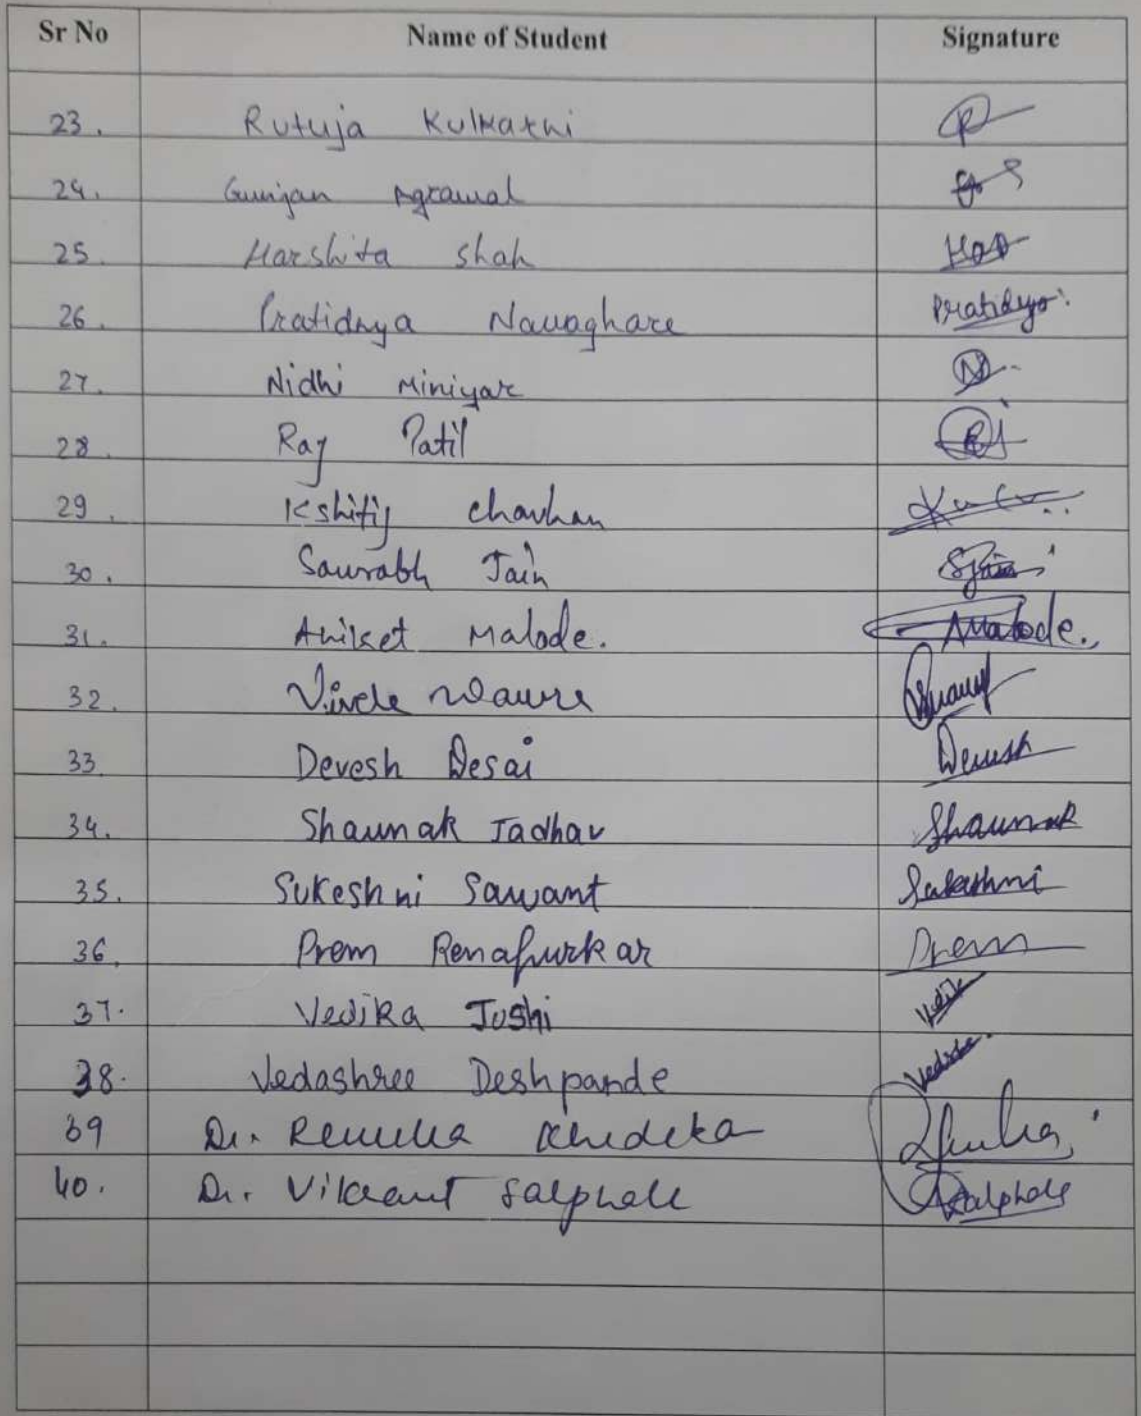 Sr No Name of Student Signature
23. Rutuja Kulkarni
24. Gunjan Agrawal
25. Harshita Shah
26. Pratidnya Navaghare Pratidnya
27. Nidhi Miniyar
28. Raj Patil
29. Kshitij Chavhan
30. Saurabh Jain SJain
31. Aniket Malode. AMalode.
32.
33. Devesh Desai Devesh
34. Shaunak Jadhav Shaunak
35. Sukeshni Sawant Sukeshni
36. Prem Renapurkar Prem
37. Vedika Joshi Vedika
38. Vedashree Deshpande
39 Dr. Renuka
40. Dr. Vikrant Salphale Salphale